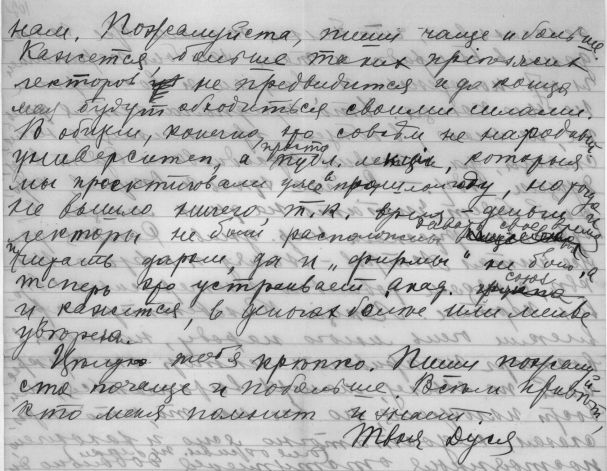 нам. Пожалуйста, пиши чаще и больше.
Кажется, больше таких приезжих
лекторов не предвидится и до конца
мая будут обходиться своими силами.
В общем, конечно, это совсем не народный
университет, а просто публ. лекции, которыя
мы проектировали уже в прошлом году, но тогда
не вышло ничего т. к. время – деньги и
лекторы не были расположены давать свое время
читать даром, да и „фирмы“ не было, а
теперь это устраивает акад. союз
и кажется, в деньгах более или менее
уверен.
Цѣлую тебя крѣпко. Пиши пожалуй-
ста почаще и побольше. Всѣм привѣт,
кто меня помнит и знает.
Твоя Дуся